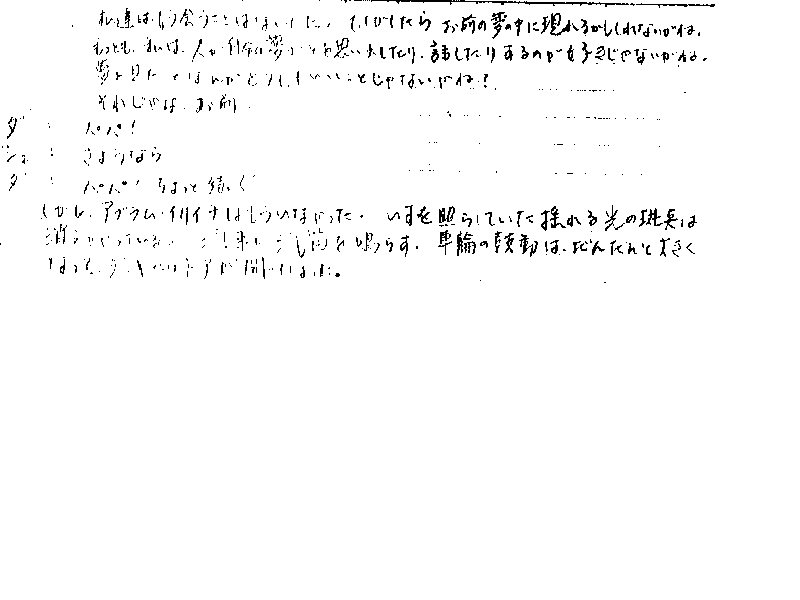 私達はもう会うことはないだろう。もしかしたらお前の夢の中に現れるかもしれないがね。
もっとも、私は、人が自分の夢のことを思い出したり、話したりするのが好きじゃないがね。
夢を見たことなんかどうでもいいことじゃないかね!
それじゃな、お前。
ダ : パパ!
シュ : さようなら
ダ : パパ! ちょっと待って
しかし、アブラム・イリイチはもういなかった。いすを照らしていた揺れる光の斑点は
消え 汽笛を鳴らす。車輪の鼓動は、だんだんと大きく
なって、 ドアが開 た。